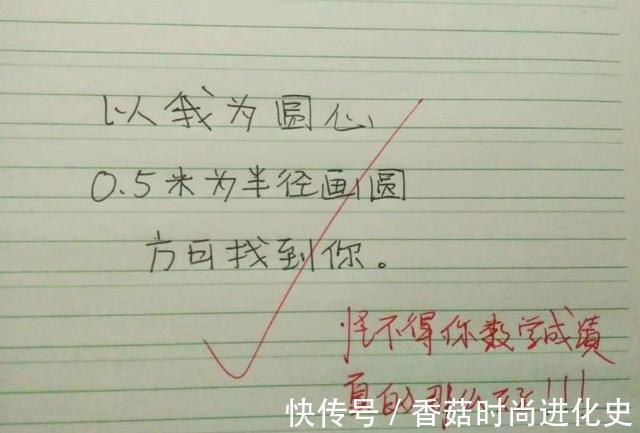 以我为圆心
0.5米为半径画圆
方可找到你。
怪不得你数学成绩
真的那么
快传号/香菇时尚进化史